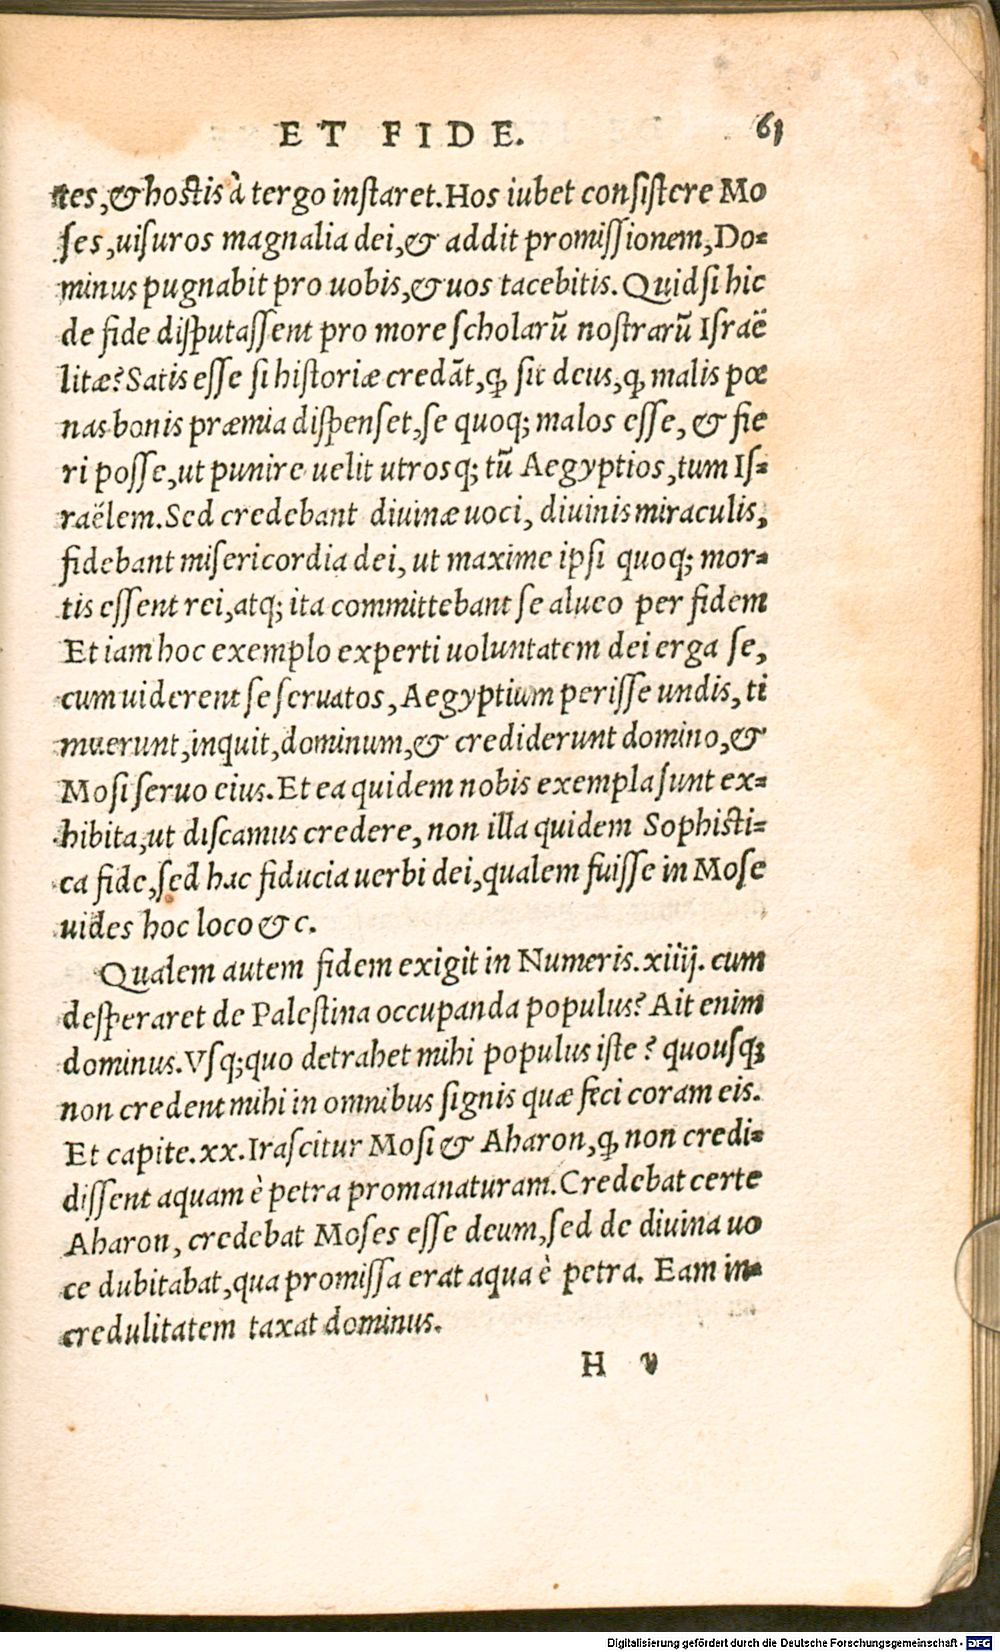 ET FIDE. 61
tes, & hostis à tergo instaret. Hos iubet consistere Mo
ses, uisuros magnalia dei, & addit promissionem, Do-
minus pugnabit pro uobis, & uos tacebitis. Quid si hic
de fide disputassent pro more scholarũ nostrarũ Israë
litæ? Satis esse si historiæ credãt, ꝙ sit deus, ꝙ malis pœ
nas bonis præmia dispenset, se quoq; malos esse, & fie
ri posse, ut punire uelit utrosq; tũ Aegyptios, tum Is-
raëlem. Sed credebant diuinæ uoci, diuinis miraculis,
fidebant misericordia dei, ut maxime ipsi quoq; mor-
tis essent rei, atq; ita committebant se alueo per fidem
Et iam hoc exemplo experti uoluntatem dei erga se,
cum uiderent se seruatos, Aegyptium perisse undis, ti
muerunt, inquit, dominum, & crediderunt domino, &
Mosi seruo eius. Et ea quidem nobis exempla sunt ex-
hibita, ut discamus credere, non illa quidem Sophisti-
ca fide, sed hac fiducia uerbi dei, qualem fuisse in Mose
uides hoc loco & c.
Qualem autem fidem exigit in Numeris. xiiij. cum
desperaret de Palestina occupanda populus? Ait enim
dominus. Vsq; quo detrahet mihi populus iste? quousq;
non credent mihi in omnibus signis quæ feci coram eis.
Et capite. xx. Irascitur Mosi & Aharon, ꝙ non credi-
dissent aquam è petra promanaturam. Credebat certe
Aharon, credebat Moses esse deum, sed de diuina uo
ce dubitabat, qua promissa erat aqua è petra. Eam in-
credulitatem taxat dominus.
H v
Digitalisierung gefördert durch die Deutsche Forschungsgemeinschaft - DFG